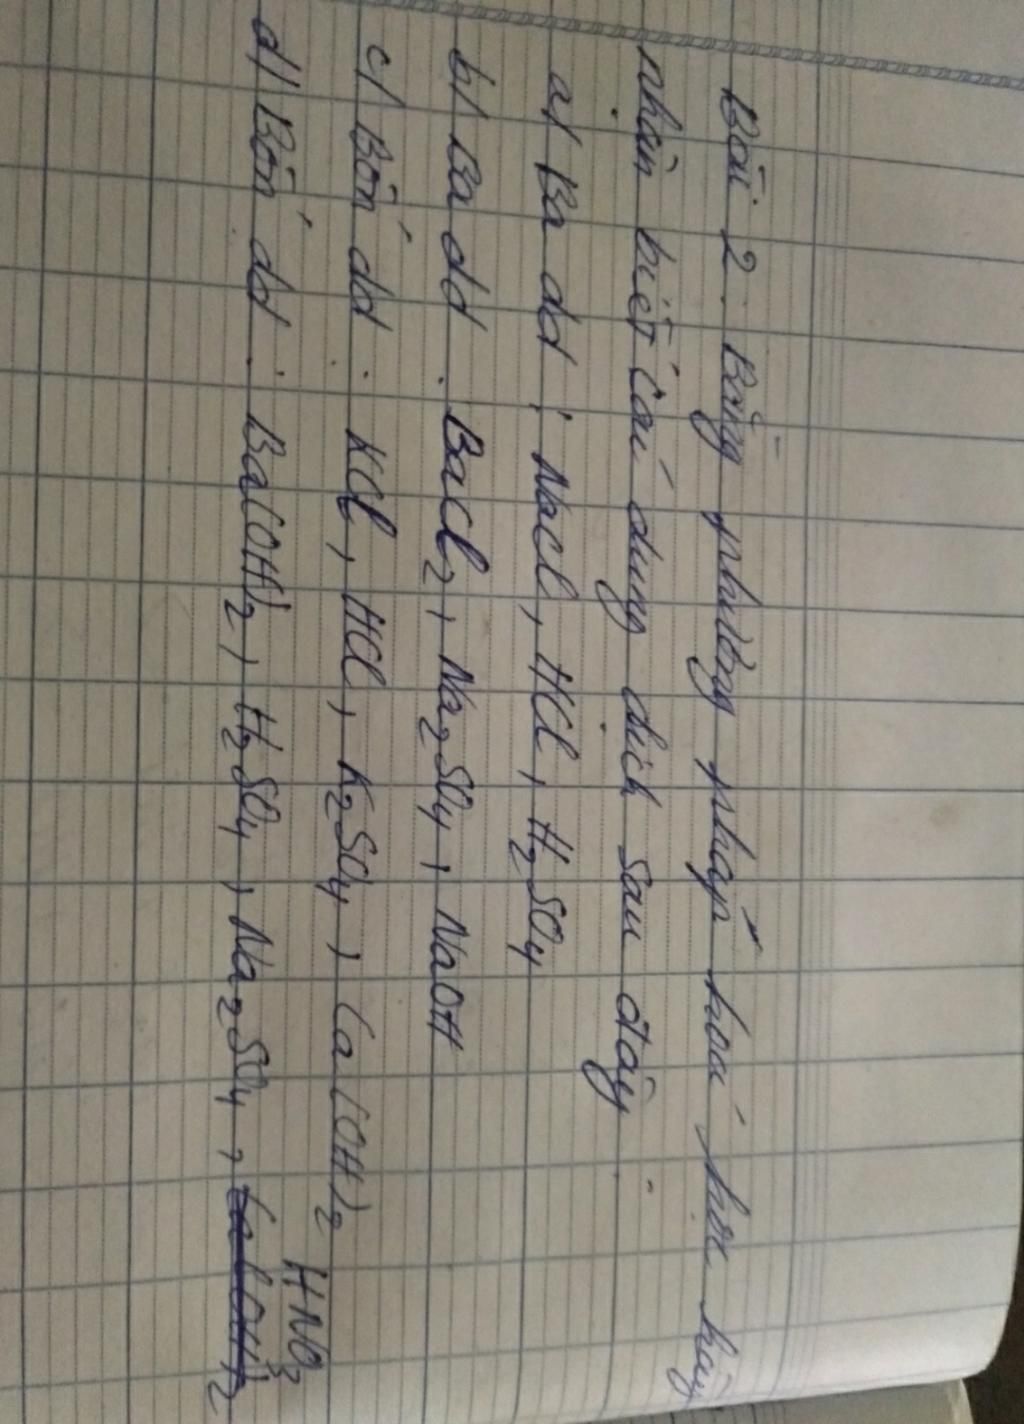 Bài 2: Bằng phương pháp hoá học hãy
nhận biết các dung dịch sau đây:
a/ Ba dd: NaCl, HCl, H2SO4
b/ Ba dd: BaCl2, Na2SO4, NaOH
c/ Bốn dd: KCl, HCl, K2SO4, Ca(OH)2
d/ Bốn dd: Ba(OH)2, H2SO4, Na2SO4, HNO3